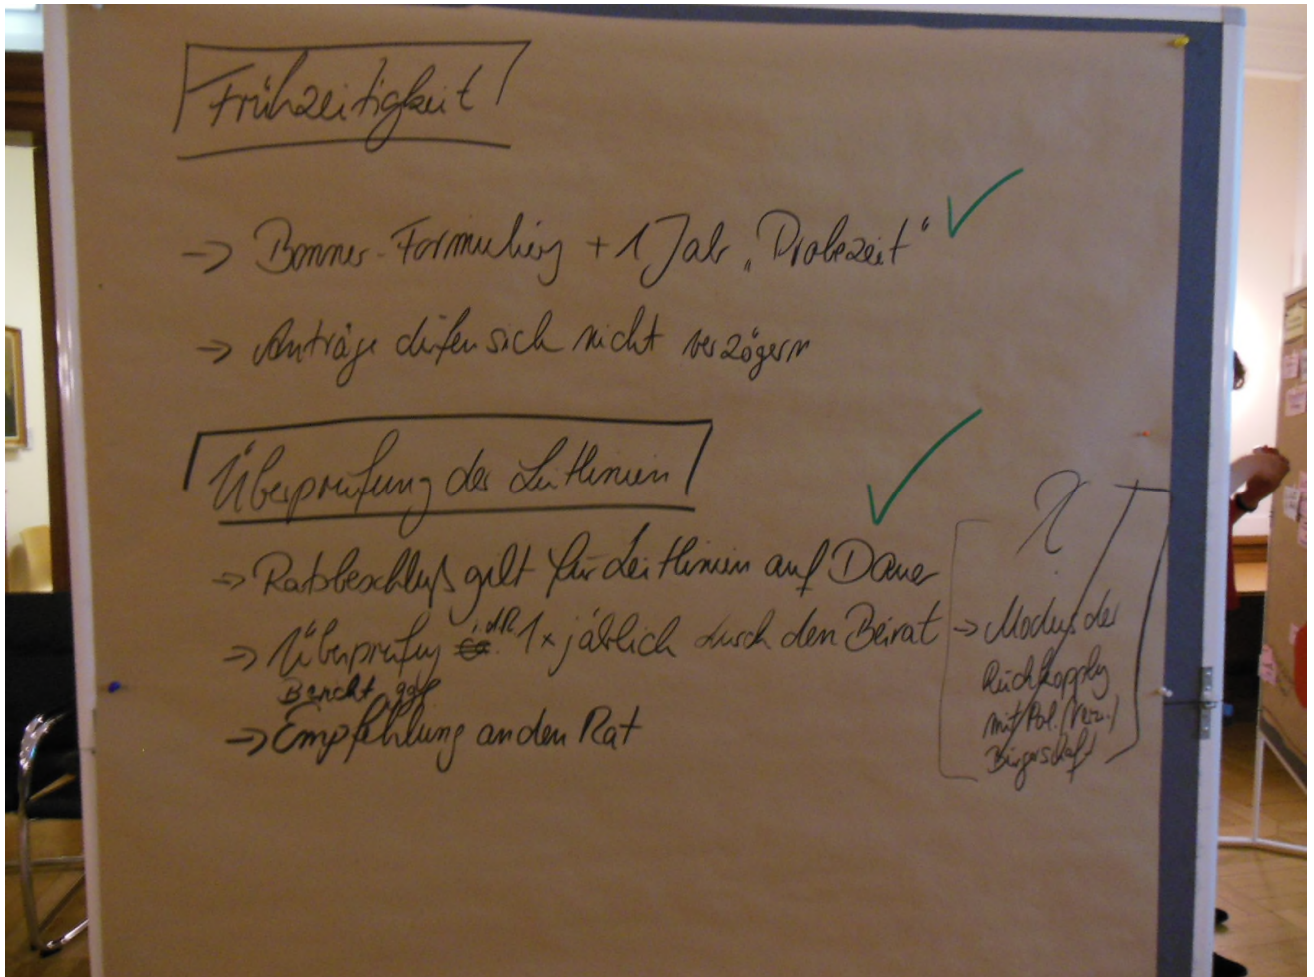 Frühzeitigkeit
-> Bonner-Formulierg + 1 Jahr „Probezeit“ ✓
-> Anträge dürfen sich nicht verzögern
Überprüfung der Leitlinien ✓
-> Ratsbeschluß gilt für Leitlinien auf Dauer
-> Überprüfg i.d.R. 1x jährlich durch den Beirat
Bericht, ggf.
-> Empfehlung an den Rat
-> Modus der
Rückkopplg
mit Pol. / Verw. /
Bürgerschaft